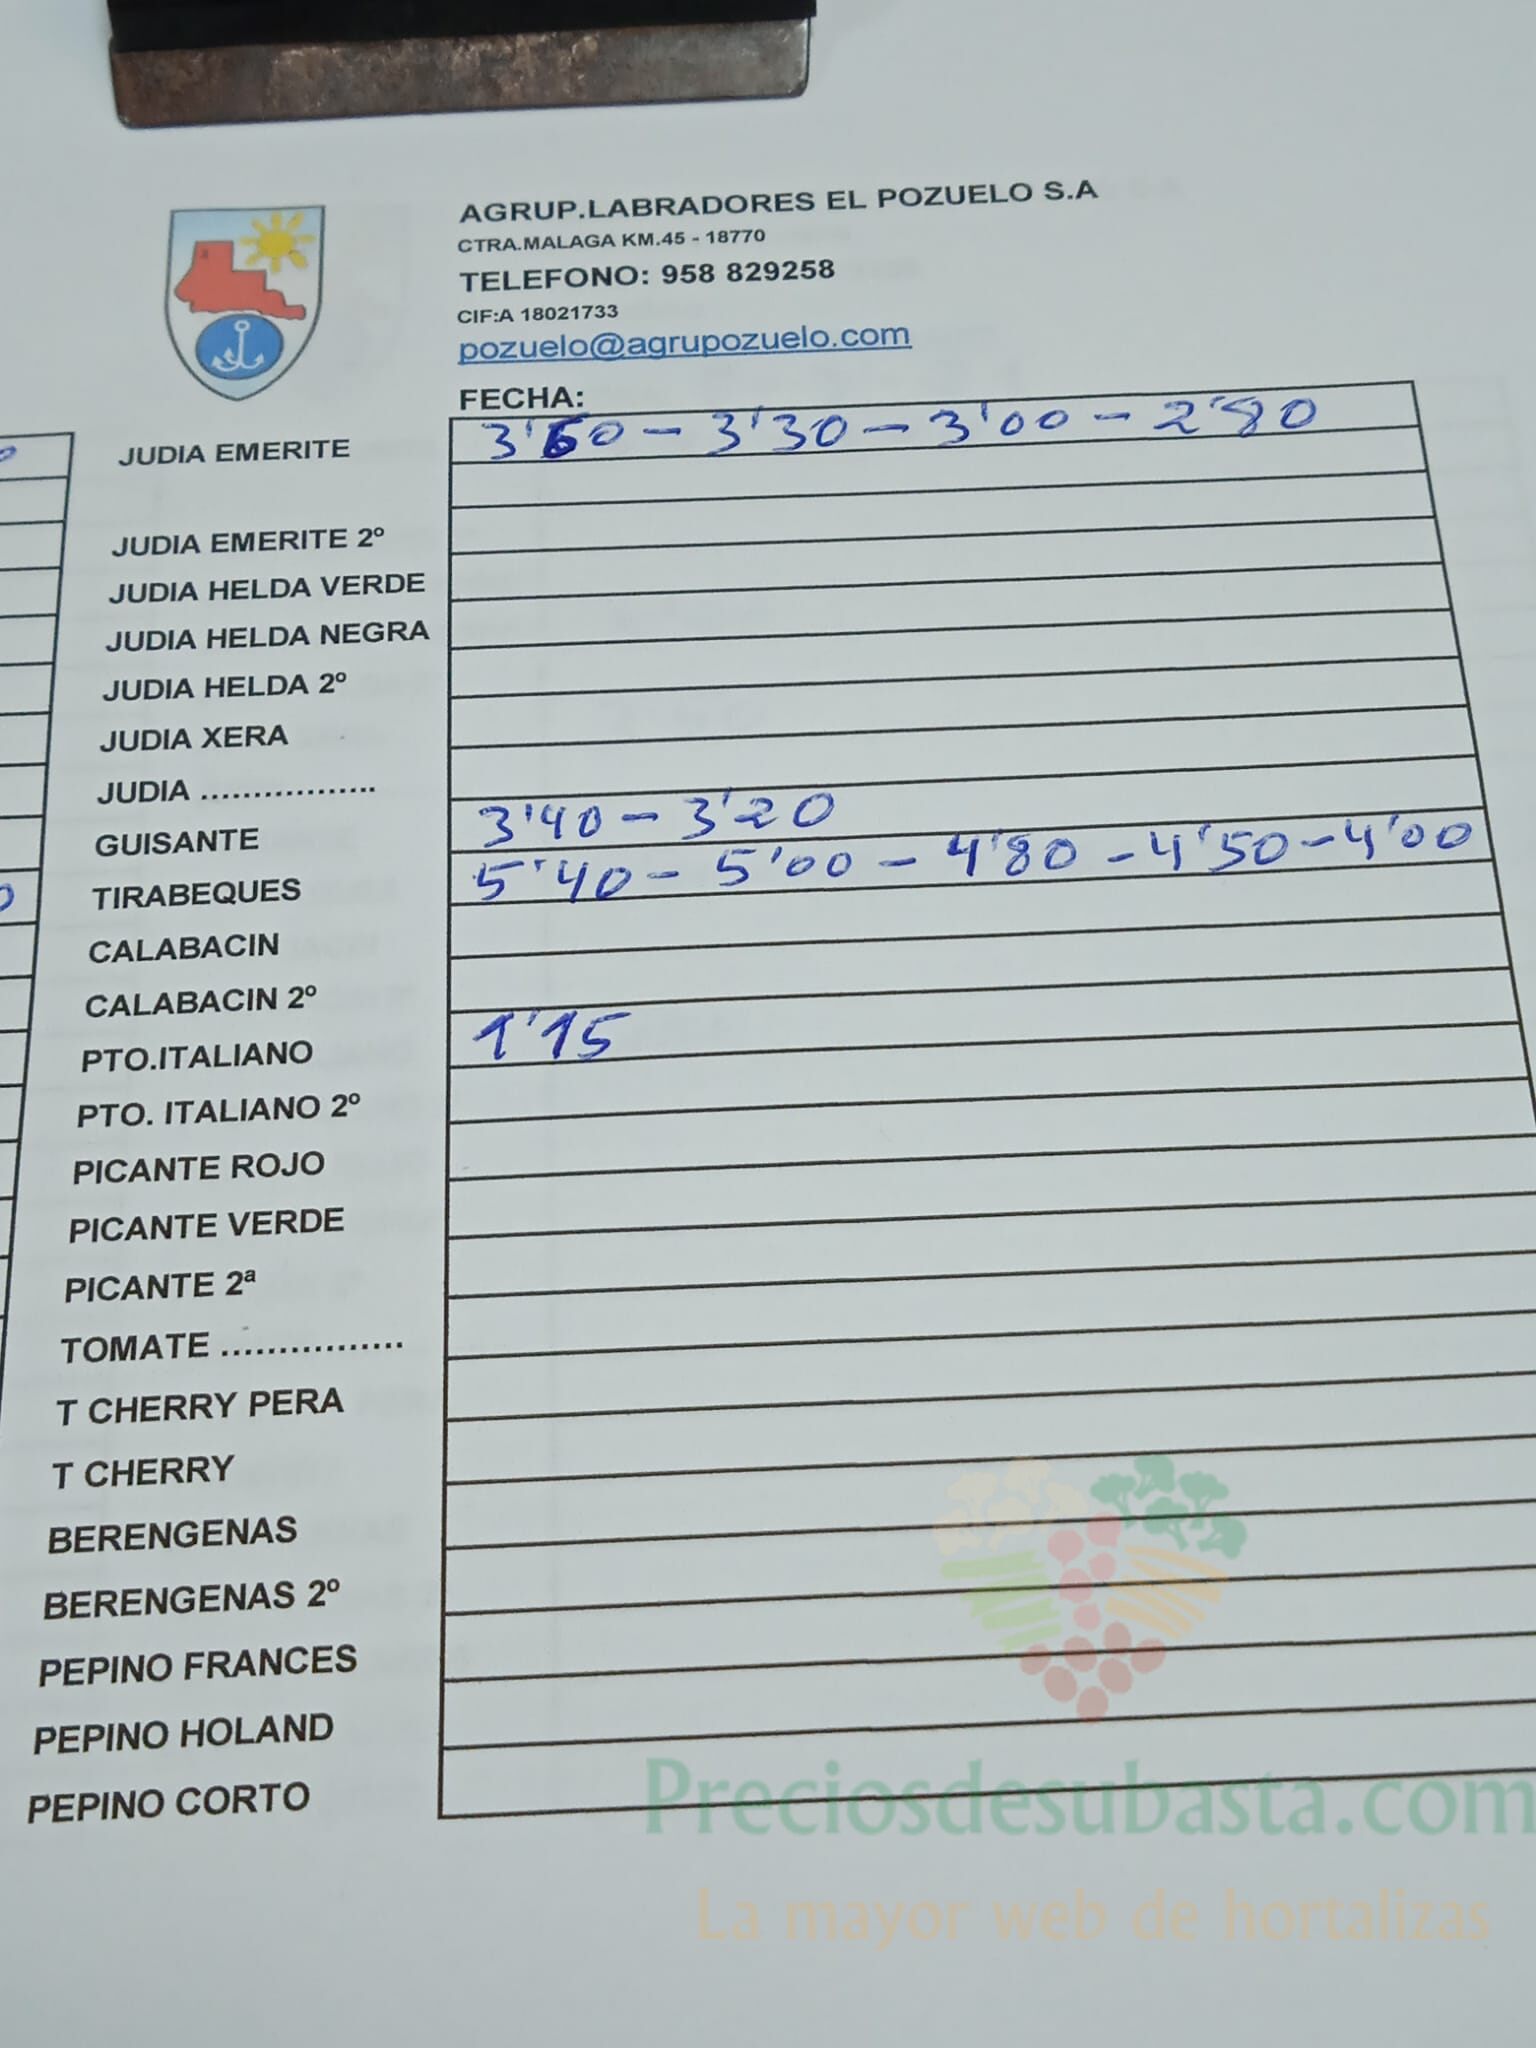 AGRUP.LABRADORES EL POZUELO S.A
CTRA.MALAGA KM.45 - 18770
TELEFONO: 958 829258
CIF:A 18021733
pozuelo@agrupozuelo.com
FECHA:
JUDIA EMERITE 3'60 - 3'30 - 3'00 - 2'80
JUDIA EMERITE 2º
JUDIA HELDA VERDE
JUDIA HELDA NEGRA
JUDIA HELDA 2º
JUDIA XERA
JUDIA .................
GUISANTE 3'40 - 3'20
TIRABEQUES 5'40 - 5'00 - 4'80 - 4'50 - 4'00
CALABACIN
CALABACIN 2º
PTO.ITALIANO 1'15
PTO. ITALIANO 2º
PICANTE ROJO
PICANTE VERDE
PICANTE 2ª
TOMATE ................
T CHERRY PERA
T CHERRY
BERENGENAS
BERENGENAS 2º
PEPINO FRANCES
PEPINO HOLAND
PEPINO CORTO
Preciosdesubasta.com
La mayor web de hortalizas